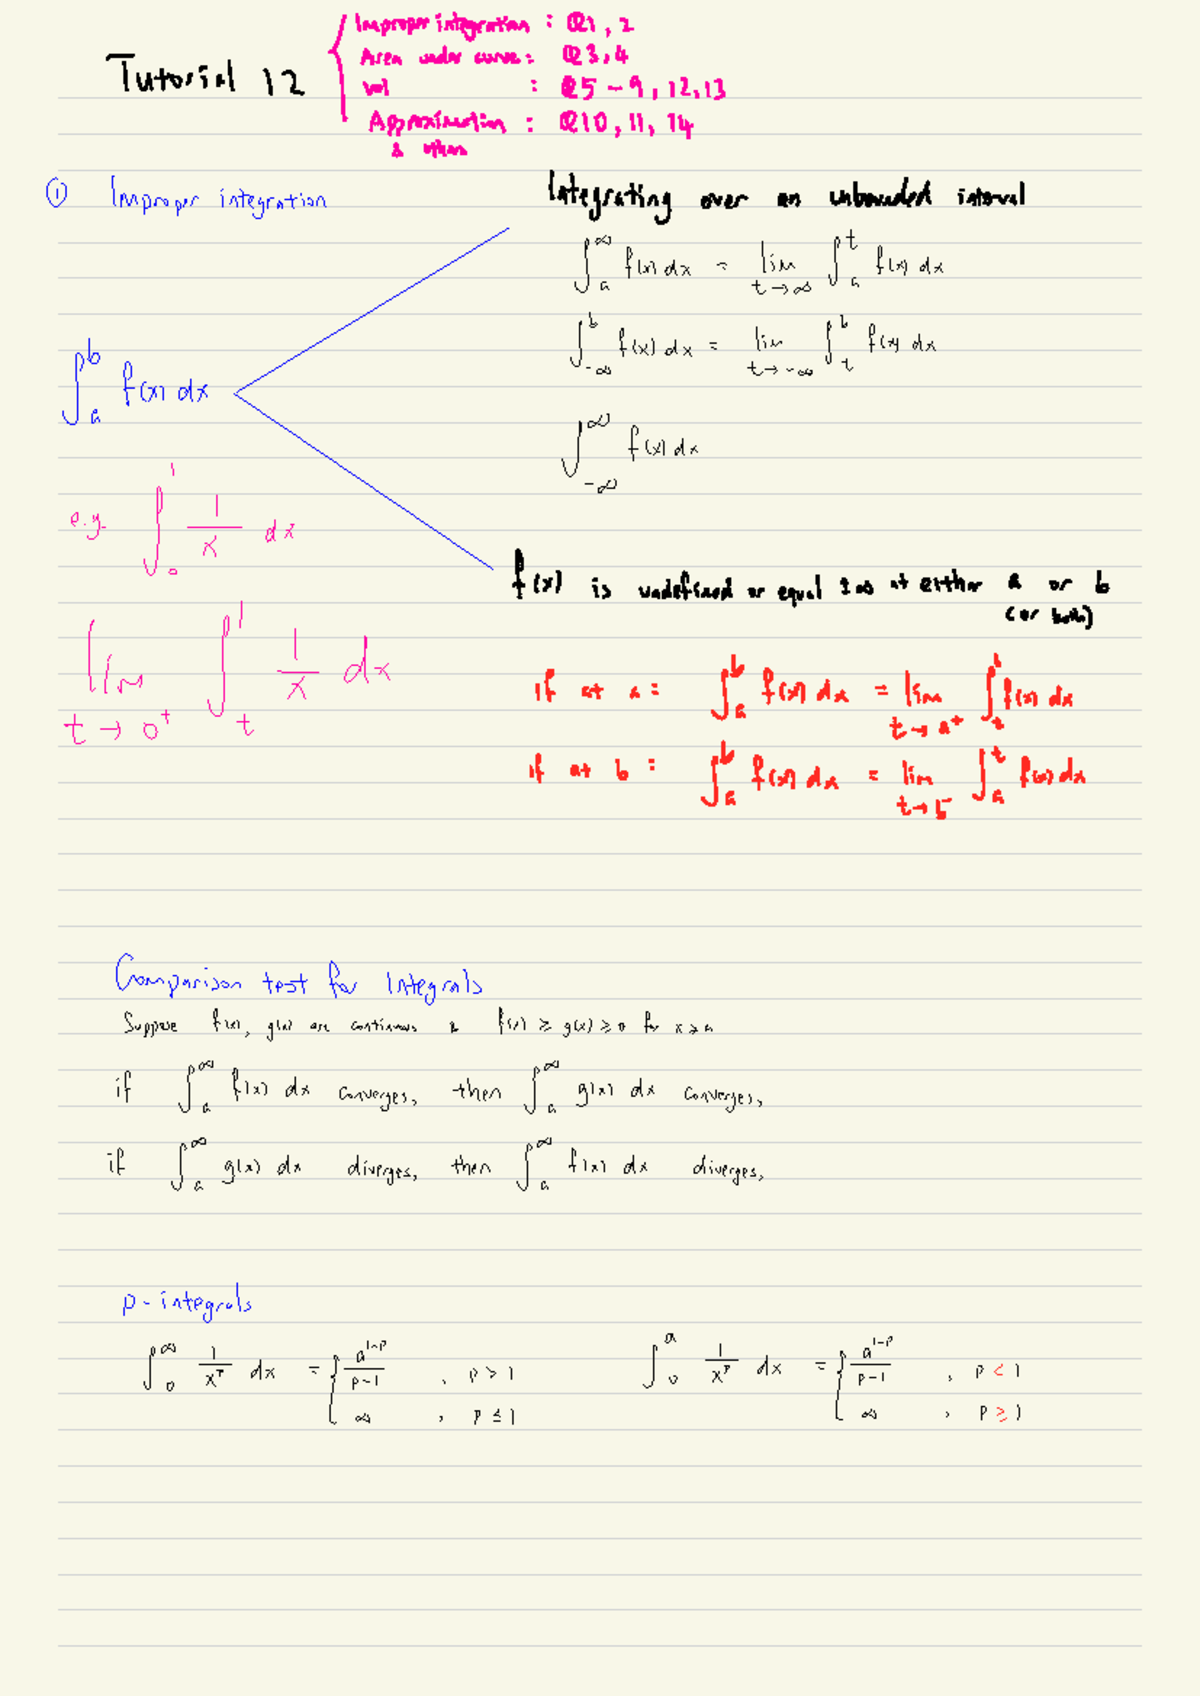 Tutorial 12
Improper integration : Q1, 2
Area under curve : Q3, 4
Vol : Q5 - 9, 12, 13
Approximation : Q10, 11, 14
& others
① Improper integration
Integrating over an unbounded interval
∫_a^∞ f(x) dx = lim_{t→∞} ∫_a^t f(x) dx
∫_{-∞}^b f(x) dx = lim_{t→-∞} ∫_t^b f(x) dx
∫_a^b f(x) dx
∫_{-∞}^∞ f(x) dx
e.g. ∫_0^1 1/x dx
f(x) is undefined or equal ±∞ at either a or b
(or both)
lim_{t→0^+} ∫_t^1 1/x dx
if at a : ∫_a^b f(x) dx = lim_{t→a^+} ∫_t^b f(x) dx
if at b : ∫_a^b f(x) dx = lim_{t→b^-} ∫_a^t f(x) dx
Comparison test for Integrals
Suppose f(x), g(x) are continuous & f(x) ≥ g(x) ≥ 0 for x ≥ a
if ∫_a^∞ f(x) dx converges, then ∫_a^∞ g(x) dx converges,
if ∫_a^∞ g(x) dx diverges, then ∫_a^∞ f(x) dx diverges,
p-integrals
∫_0^∞ 1/x^p dx = { a^{1-p}/(p-1) , p > 1
∞ , p ≤ 1
∫_0^a 1/x^p dx = { a^{1-p}/(p-1) , p < 1
∞ , p ≥ 1